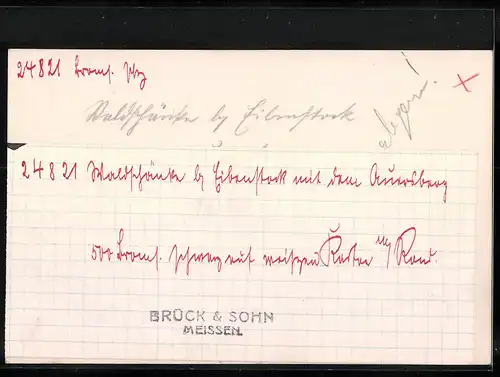 24821 Broms. schwz
Waldschänke by Eibenstock
24821 Waldschänke by Eibenstock mit dem Auersberg
500 Broms. schwarz auf weissen Karton m/ Rand.
BRÜCK & SOHN
MEISSEN